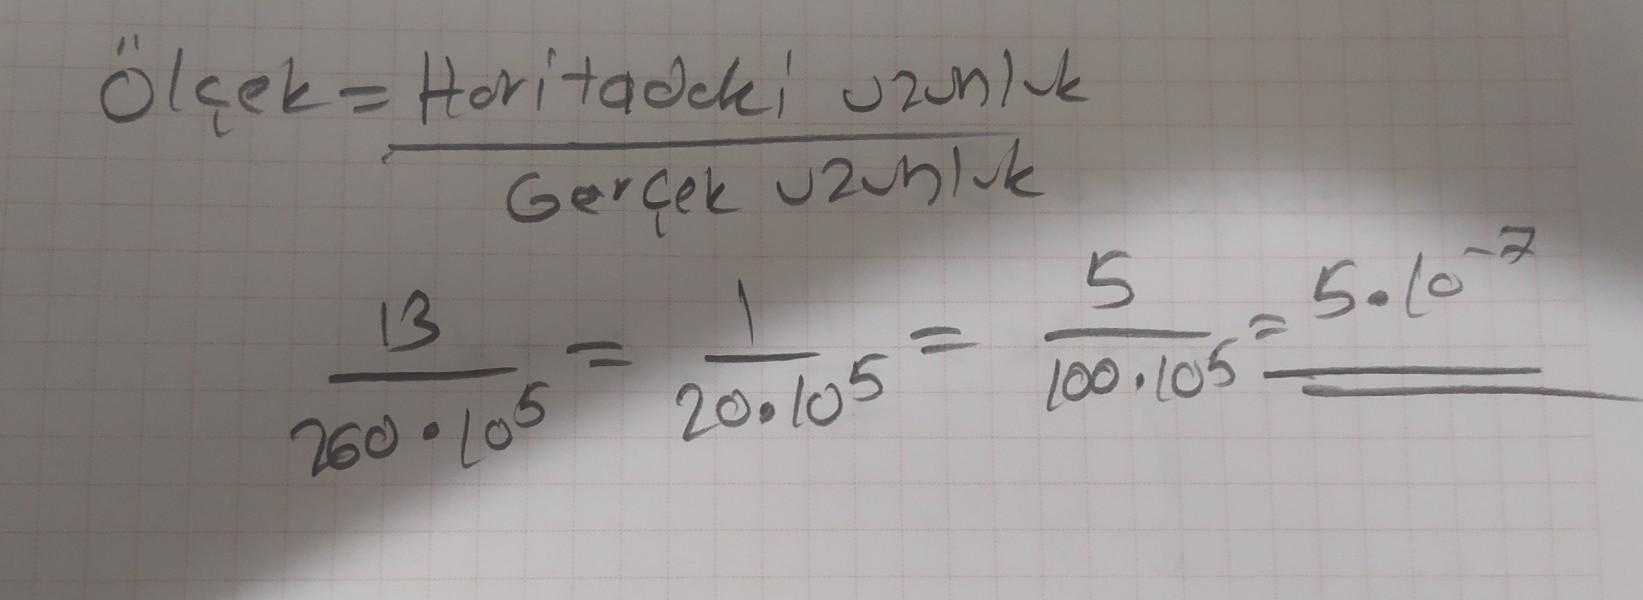 Ölçek = Haritadaki uzunluk
Gerçek uzunluk
13 / 260·10⁵ = 1 / 20·10⁵ = 5 / 100·10⁵ = 5·10⁻⁷